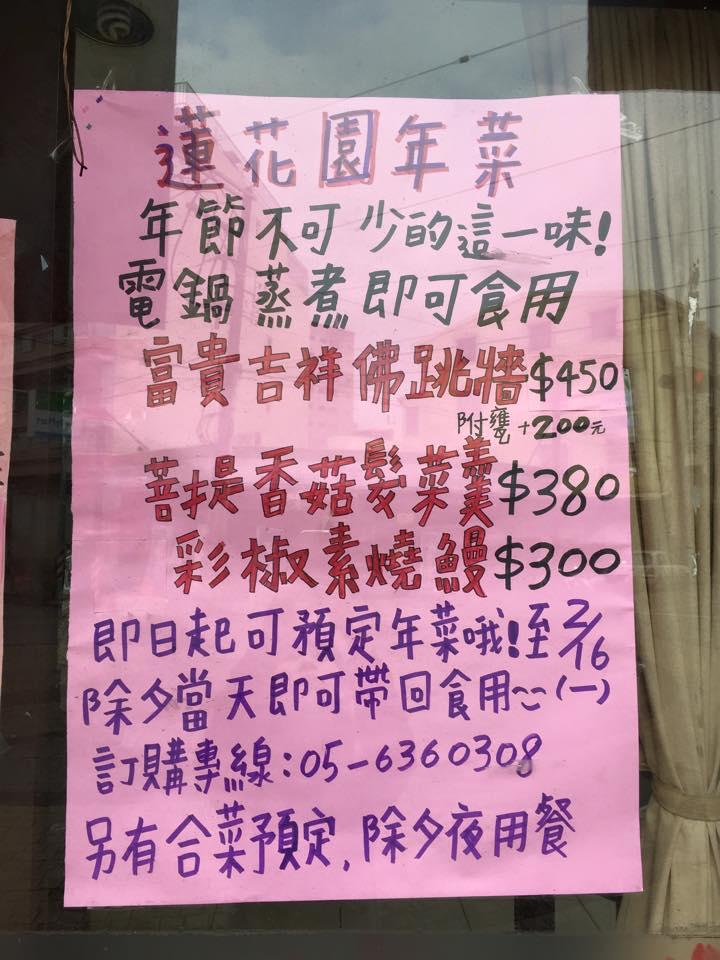 蓮花園年菜
年節不可少的這一味!
電鍋蒸煮即可食用
富貴吉祥佛跳牆$450
附甕+200元
菩提香菇髮菜羹$380
彩椒素燒鰻$300
即日起可預定年菜哦!至2/16
除夕當天即可帶回食用~~(一)
訂購專線:05-6360308
另有合菜預定,除夕夜用餐